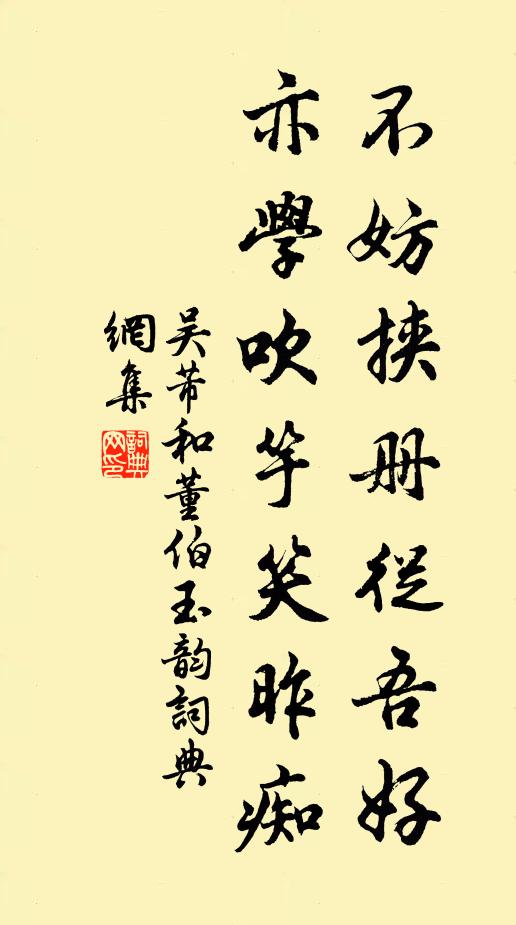 不妨挾册從吾好
亦學吹竽笑昨痴
吴芾和董伯玉韵詞典
網集
詞典網印